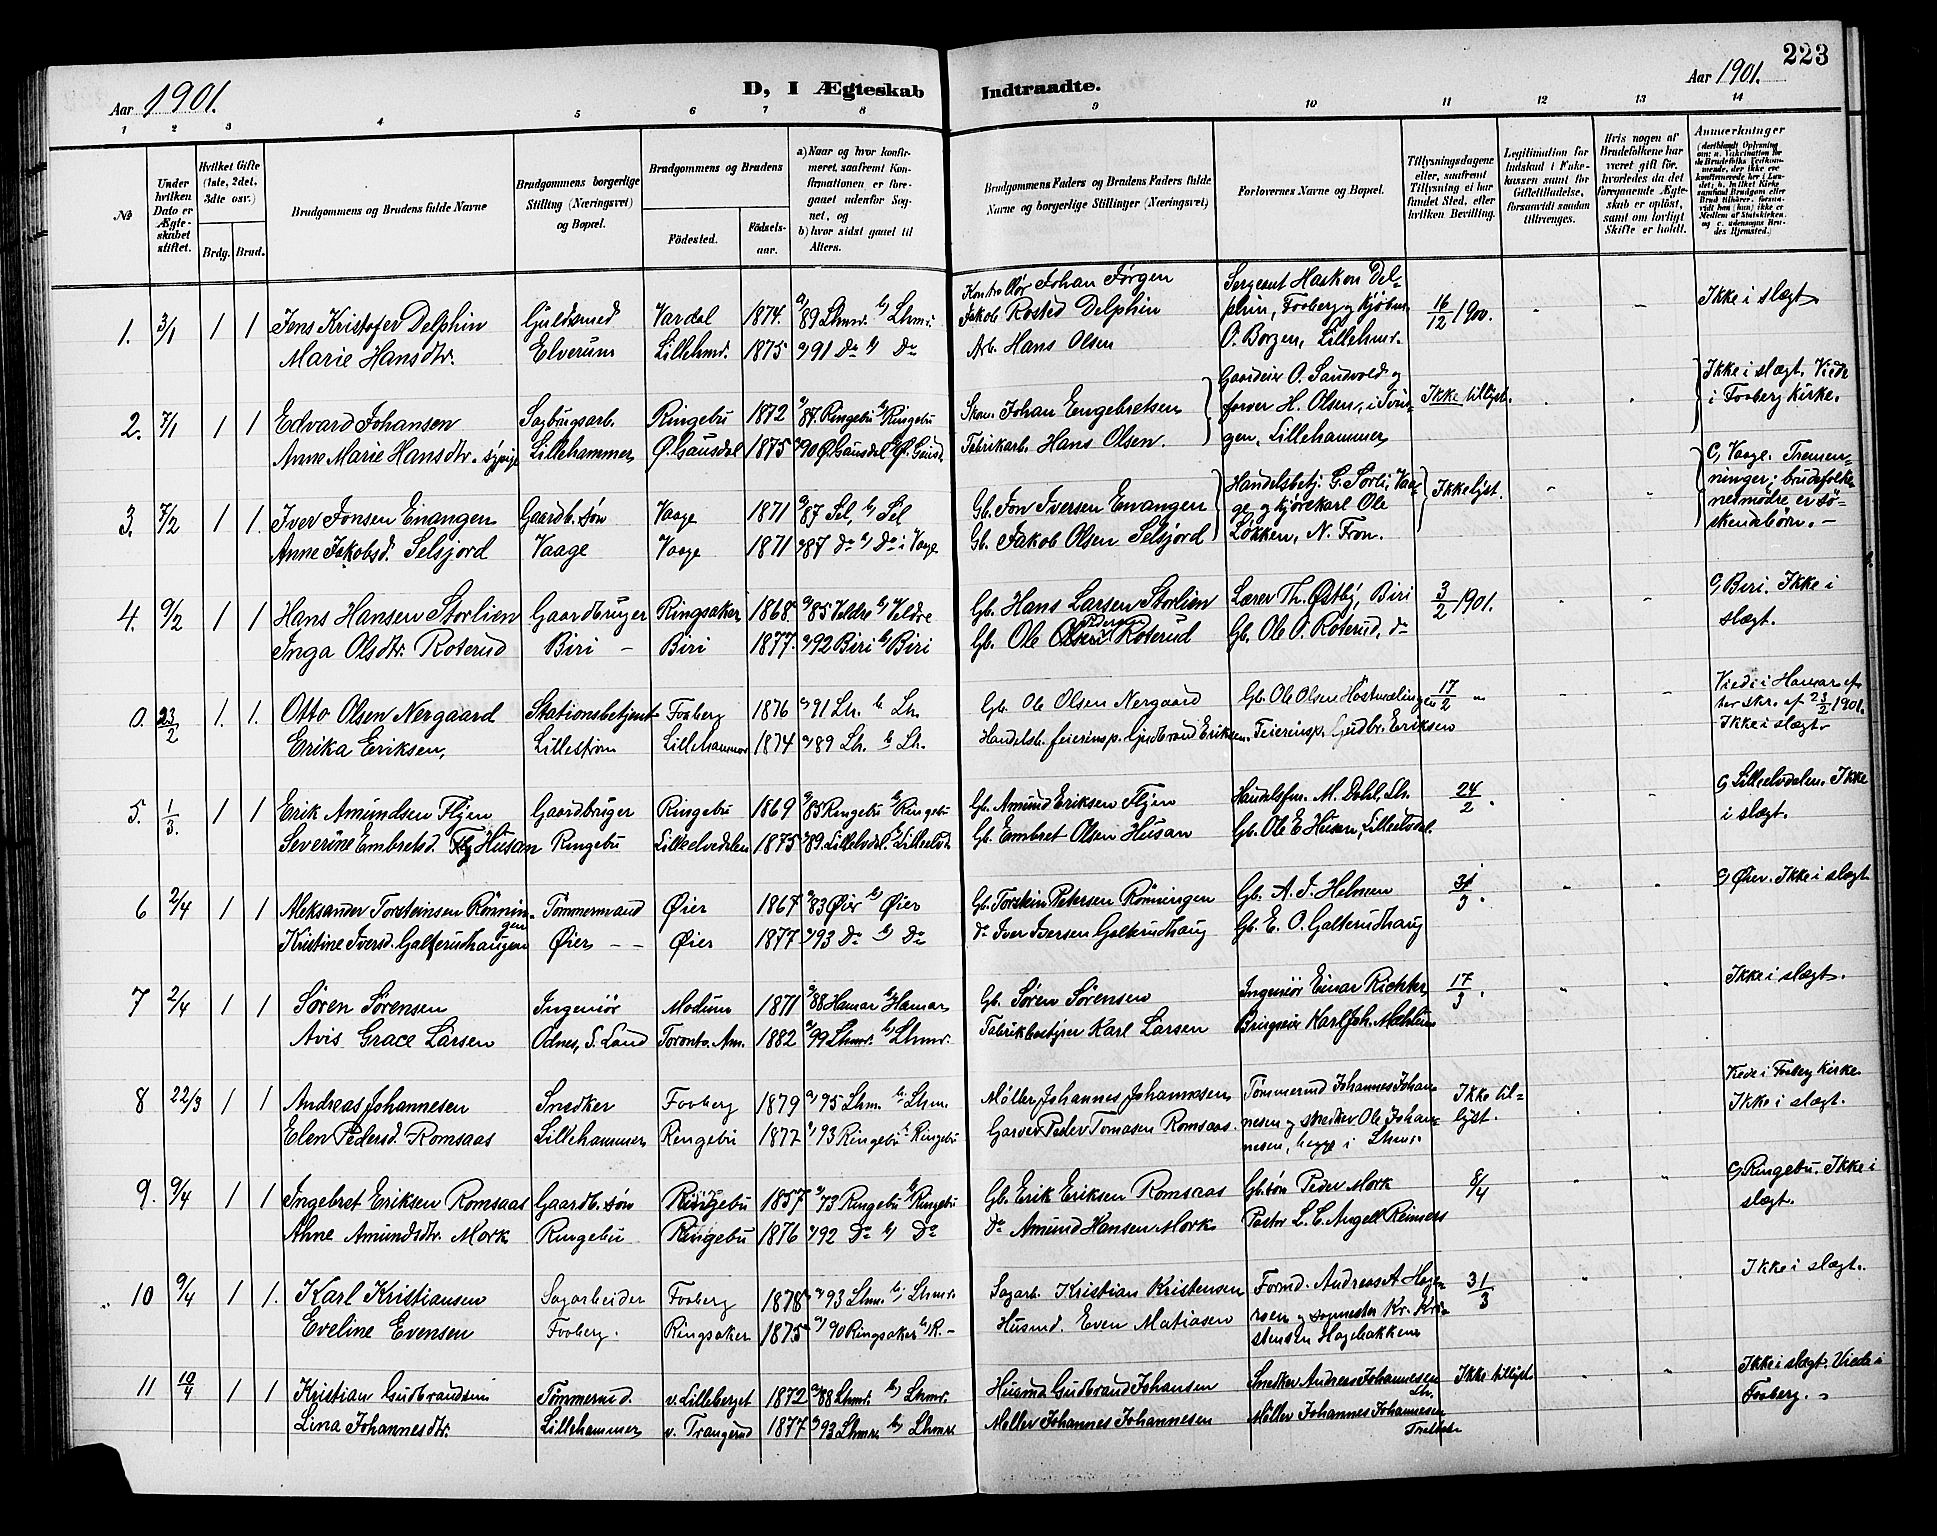 223
Aar 1901. D, I Ægteskab Indtraadte. Aar 1901.
1 2 3 4 5 6 7 8 9 10 11 12 13 14
No
Under hvilken Dato er Ægteskabet stiftet.
Hvilket Gifte (1ste, 2det, 3dte osv.)
Brdg. Brud.
Brudgommens og Brudens fulde Navne
Brudgommens borgerlige Stilling (Næringsvei) og Bopæl.
Brudgommens og Brudens
Fødested. Fødselsaar.
a) Naar og hvor konfirmeret, saafremt Konfirmationen er foregaaet udenfor Sognet, og
b) hvor sidst gaaet til Alters.
Brudgommens Faders og Brudens Faders fulde Navne og borgerlige Stillinger (Næringsvei)
Forlovernes Navne og Bopæl.
Tillysningsdagene eller, saafremt Tillysning ei har fundet Sted, efter hvilken Bevilling.
Legitimation for Indskud i Enkekassen samt for Giftetilladelse, forsaavidt saadan tiltrænges.
Hvis nogen af Brudefolkene har været gift før, hvorledes da det foregaaende Ægteskab er opløst, samt om lovligt Skifte er holdt.
Anmerkninger
(deriblandt Oplysning om: a. Vakcination for de Brudefolks Vedkommende, der ikke ere konfirmerede her i Landet; b. hvilket Kirkesamfund Brudgom eller Brud tilhører, forsaavidt han (hun) ikke er Medlem af Statskirken, og c. udensogns Brudes Hjemsted.)
1. 3/1 1 1 Jens Kristofer Delphin Guldsmed Vardal 1874. a) 89 Lhmr. b) Lhmr. Kontrollør Johan Jørgen Jakob Rosted Delphin Sergeant Haakon Delphin, Faaberg og kjøbm. O. Borgen, Lillehmr. 16/12 1900. Ikke i slægt
Marie Hansdtr. Elverum Lillehmr. 1875 a) 91 Do b) Do Arb. Hans Olsen
2. 7/1 1 1 Edvard Johansen Sagbrugsarb. Ringebu 1872 a) 87 Ringebu b) Ringebu Skom. Johan Engebretsen Gaardeier O. Sandvold og farver H. Olsen, i Svingen, Lillehammer Ikke tillyst. Ikke i slægt. Viede i Faaberg Kirke.
Anne Marie Hansdtr. Lillehammer Ø. Gausdal 1875 a) 90 Ø. Gausdal b) Ø. Gausd. Fabrikarb. Hans Olsen.
3. 7/2 1 1 Iver Jonsen Enangen Gaardb. søn Vaage 1871 a) 87 Sel, b) Sel Gb. Jon Iversen Enangen Handelsbetj. G. Sørli, Vaage, og kjørekarl Ole Løkken, N. Fron. Ikke lyst. c) Vaage. Tremenninger; brudefolkenes mødre er søskendebørn. –
Anne Jakobsd. Selsjord Vaage Vaage 1871 a) 87 Do b) Do i Vaage Gb. Jakob Olsen Selsjord
4. 9/2 1 1 Hans Hansen Storlien Gaardbruger Ringsaker 1868 a) 85 Veldre b) Veldre Gb. Hans Larsen Storlien Lærer Th. Østby, Biri 3/2 1901. c) Biri. Ikke i slægt.
Inga Olsdtr. Roterud Biri – Biri 1877. a) 92 Biri b) Biri Gb. Ole Roterud Gb. Ole O. Roterud, do
0. 23/2 1. 1. Otto Olsen Nergaard Stationsbetjent Faaberg 1876 a) 91 Lh. b) Lh. Gb. Ole Olsen Nergaard Gb. Ole Olsen Høstmælingen 17/2 Viede i Hamar efter skr. af 23/2 1901. Ikke i slægt.
Erika Eriksen, Lillestrøm Lillehammer 1874 a) 89 Lh. b) Lh. Handelsb. feierinsp. Gudbrand Eriksen. Feierinsp. Gudbr. Eriksen
5. 1/3. 1 1 Erik Amundsen Flyen Gaardbruger Ringebu 1869 a) 85 Ringebu b) Ringebu Gb. Amund Eriksen Flyen Handelsfm. M. Dahl, Lh. 24/2. c) Lilleelvdalen. Ikke i slægt.
Severine Embretsd. Husan Ringebu Lilleelvedalen 1875 a) 89. Lilleelvdal. b) Lilleelvd. Gb. Embret Olsen Husan Gb. Ole E. Husan, Lilleelvdal.
6 2/4 1 1 Aleksander Torsteinsen Rønningen Tømmermand Øier 1867 a) 83 Øier b) Øier Gb. Torstein Petersen Rønningen Gb. A. J. Helmen 31/3. c) Øier. Ikke i slægt
Kristine Iversd. Galterudhaugen Øier – – Øier 1877 a) 93 Do b) Do Do Iver Iversen Galterudhaug Gb. E. O. Galterudhaug
7 2/4 1 1 Søren Sørensen Ingeniør Modum 1871 a) 88 Hamar b) Hamar Gb. Søren Sørensen Ingeniør Einar Richter 17/3. Ikke i slægt.
Avis Grace Larsen Odnes, S. Land Toronto. Am. 1882 a) 99 Lhmr. b) Lhmr. Fabrikbestyrer Karl Larsen Brugseier Karl Joh. Mæhlum
8 22/3 1 1 Andreas Johannesen Snedker Faaberg 1879 a) 95 Lhm. b) Lhm. Møller Johannes Johannesen Tømmermd Johannes Johannesen og snedker Ole Johannesen, begge i Lhmr. Ikke tillyst. Viede i Faaberg Kirke. Ikke i slægt.
Elen Pedersd. Romsaas Lillehammer Ringebu 1877 a) 93 Ringebu b) Ringebu Garver Peder Tomasen Romsaas.
9. 9/4 1 1 Ingebret Eriksen Romsaas Gaardb. søn Ringebu 1857 a) 73 Ringebu b) Ringebu Gb. Erik Eriksen Romsaas Gb. søn Peder Mork 8/4 c) Ringebu. Ikke i slægt.
Anne Amundsdtr. Mork Ringebu Ringebu 1876 a) 92 Do b) Do Do Amund Hansen Mork Pastor L. C. Angell Reimers
10 9/4 1 1. Karl Kristiansen Sagarbeider Faaberg 1878 a) 93 Lhm. b) Lhmr. Sagarb. Kristian Kristensen Formd. Andreas A. Hagensen og sagmester Kr. Kristensen Hagebakken 31/3 Ikke i slægt.
Eveline Evensen Faaberg. Ringsaker 1875 a) 90 Ringsaker b) R. – Husmd. Even Matiasen
11 10/4 1 1 Kristian Gudbrandsen Tømmermd. v. Lilleberget 1872 a) 88 Lhmr. b) Lhmr. Husmd Gudbrand Johansen Snedker Andreas Johannesen Lh. Ikke tillyst Ikke i slægt. Viede i Faaberg. –
Lina Johannesdtr. Lillehammer v. Trangerud 1877 a) 93 Lhmr. b) Lhmr. Møller Johannes Johannesen Møller Johannes Johannesen